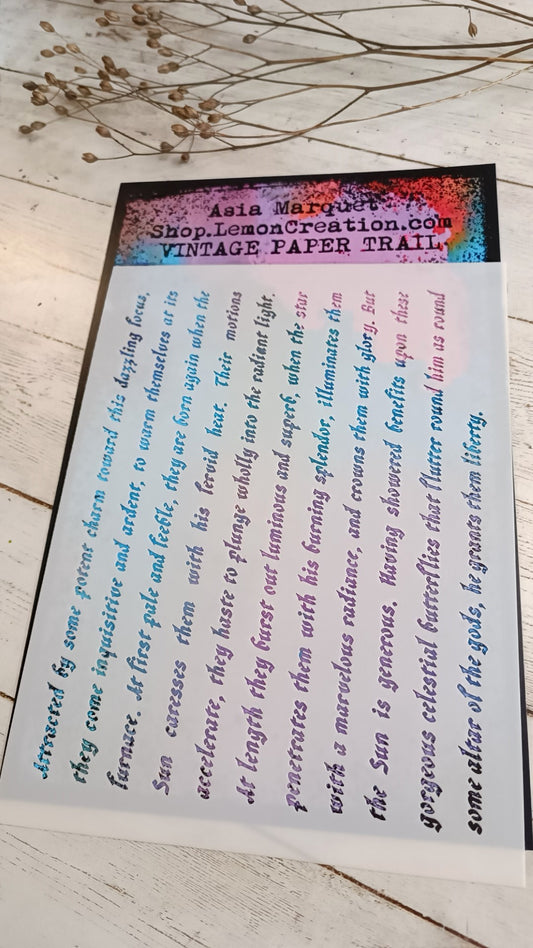 Asia Marquet
Shop.LemonCreation.com
VINTAGE PAPER TRAIL
Attracted by some potent charm toward this dazzling focus,
they come inquisitive and ardent, to warm themselves at its
furnace. At first pale and feeble, they are born again when the
Sun caresses them with his fervid heat. Their motions
accelerate, they haste to plunge wholly into the radiant light.
At length they burst out luminous and superb, when the star
penetrates them with his burning splendor, illuminates them
with a marvelous radiance, and crowns them with glory. But
the Sun is generous. Having showered benefits upon these
gorgeous celestial butterflies that flutter round him as round
some altar of the gods, he grants them liberty.